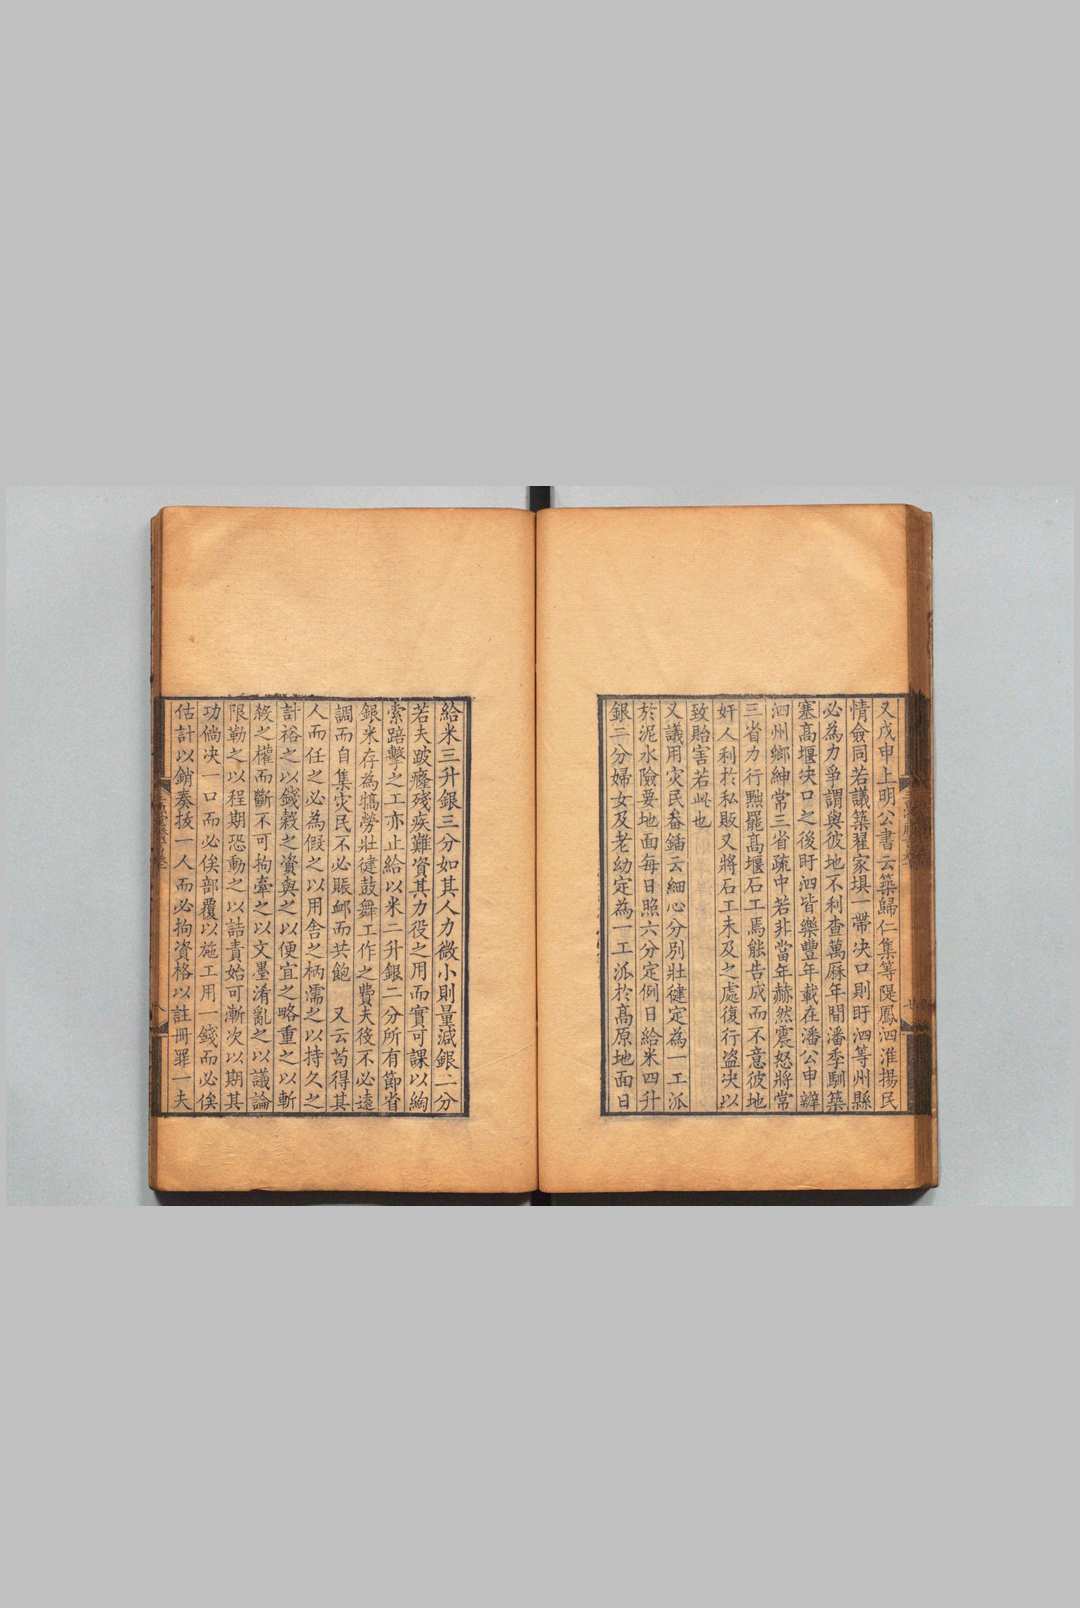 又戊申上明公書云築歸仁集等隄鳳泗淮揚民
情僉同若議築翟家垻一帶决口則盱泗等州縣
必為力爭謂與彼地不利查萬厤年間潘季馴築
塞髙堰决口之後盱泗皆樂豐年載在潘公申辯
泗州鄉紳常三省疏中若非當年赫然震怒將常
三省力行黜罷髙堰石工焉能告成而不意彼地
奸人利於私販又將石工未及之處復行盗决以
致貽害若此也
又議用灾民畚鍤云細心分别壯健定為一工派
於泥水險要地面每日照六分定例日給米四升
銀三分婦女及老幼定為一工派於髙原地面日
給米三升銀三分如其人力微小則量減銀二分
若夫跛癃殘疾難資其力役之用而實可課以綯
索踣擊之工亦止給以米二升銀二分所有節省
銀米存為犒勞壯健鼓舞工作之費夫後不必遠
調而自集灾民不必賑邺而共飽 又云茍得其
人而任之必為假之以用舎之柄濡之以持久之
計裕之以錢穀之資與之以便宜之略重之以斬
殺之權而斷不可拘牽之以文墨淆亂之以議論
限勒之以程期恐動之以詰責始可漸次以期其
功倘决一口而必俟部覆以施工用一錢而必俟
估計以銷奏拔一人而必拘資格以註冊罪一夫